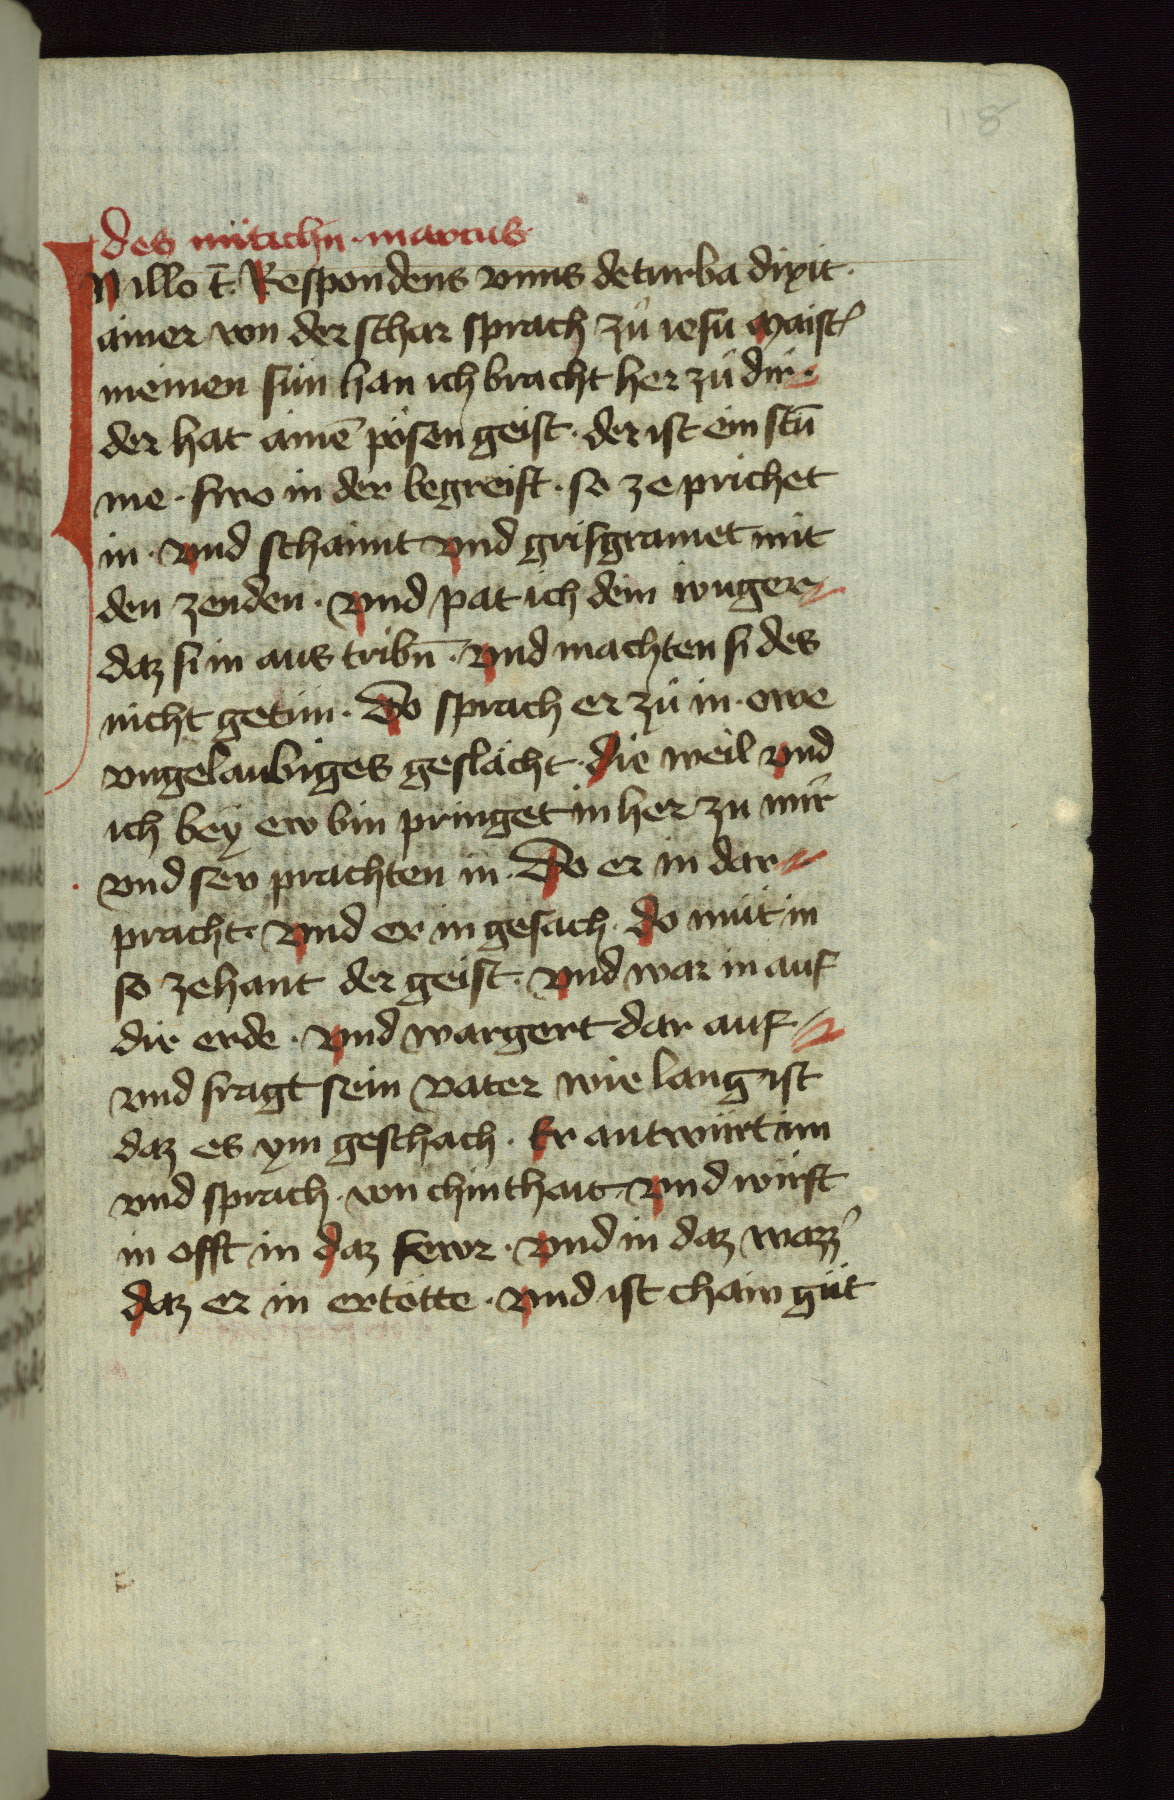 118
des mitichn · marcus
IN illo t̄. Respondens vnus de turba dixit ·
ainer von der schar sprach zů iesu Maist͛
meinen sun han ich bracht her zů dir ·
der hat ainē pösen geist · der ist ein stū
me · swo in der begreift · so zeprichet
in · vnd schaimt vnd grisgramet mit
den zenden · vnd pat ich dein iunger
daz si in aus tribn̄ · vnd machten si des
nicht getun · Do sprach er zů in · owe
vngelaubiges geslächt · die weil vnd
ich beÿ ew bin pringet in her zu mir
vnd sew prachten in · Do er in dar
pracht · vnd er in gesach · do mut in
so zehant der geist · vnd war in auf
die erde · vnd wargert dar auf ·
vnd fragt sein vater wie lang ist
daz es ym geschach · Er antwürt im
vnd sprach · von chinthait vnd würft
in offt in daz fewr · vnd in daz wazz͛
daz er in ertötte · vnd ist chain güt